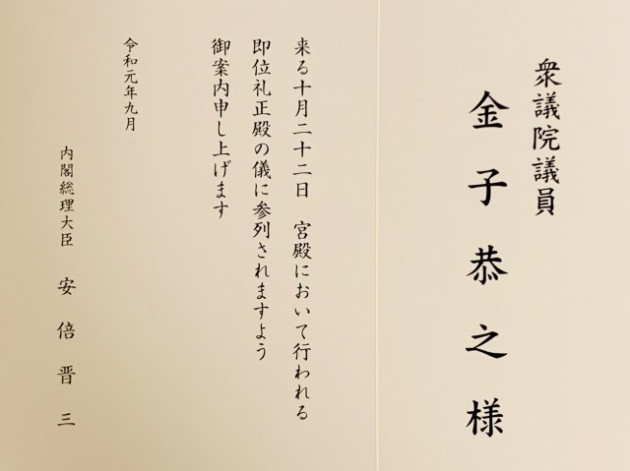 衆議院議員
金子恭之様
来る十月二十二日　宮殿において行われる
即位礼正殿の儀に参列されますよう
御案内申し上げます
令和元年九月
内閣総理大臣　安倍晋三